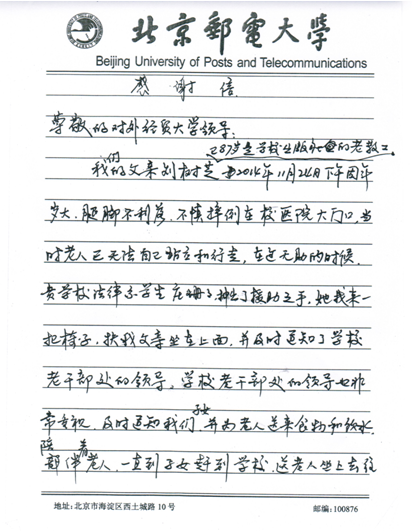 北京郵電大學
Beijing University of Posts and Telecommunications
感谢信
尊敬的对外经贸大学领导:
已87岁是学校出版的老教工
我们的父亲刘树 于2014年11月24日下午因年
岁大、腿脚不利落,不慎摔倒在校医院大门口,当
时老人已无法自己站立和行走,在这无助的时候,
贵学校法律系学生 伸出了援助之手,她找来一
把椅子,扶我父亲坐在上面,并及时通知了学校
老干部处的领导,学校老干部处的领导也非
常重视,及时通知我们子女,并为老人送来食物和饮水,
陪着老人,一直到子女赶到学校,送老人坐上去往
地址:北京市海淀区西土城路 10 号 邮编:100876